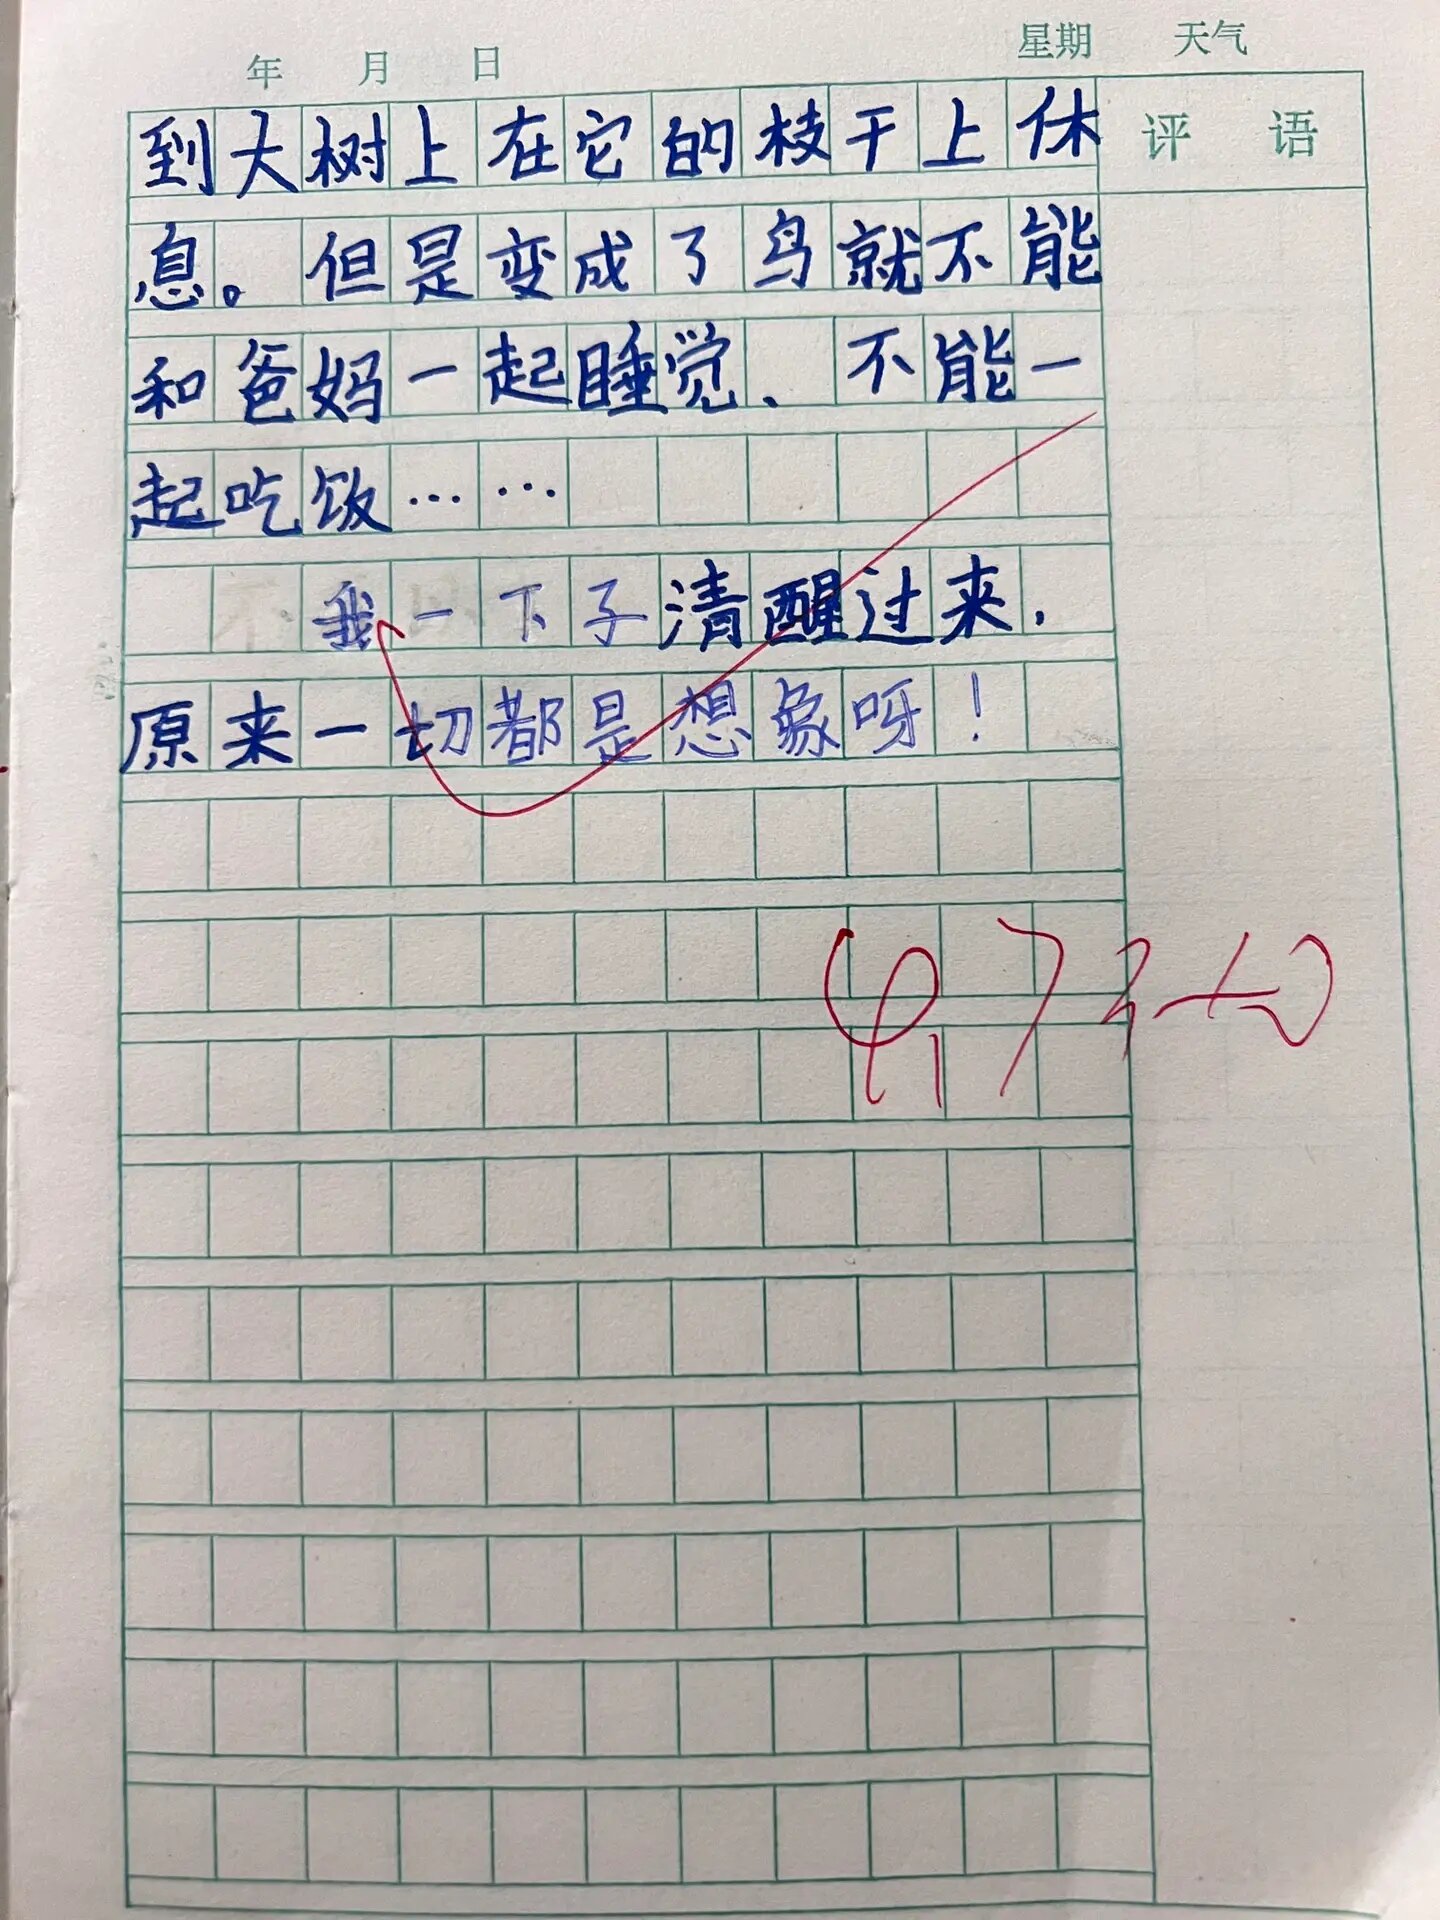 年 月 日 星期 天气
到大树上在它的枝干上休
评 语
息。但是变成了鸟就不能
和爸妈一起睡觉、不能一
起吃饭……
我一下子清醒过来,
原来一切都是想象呀!